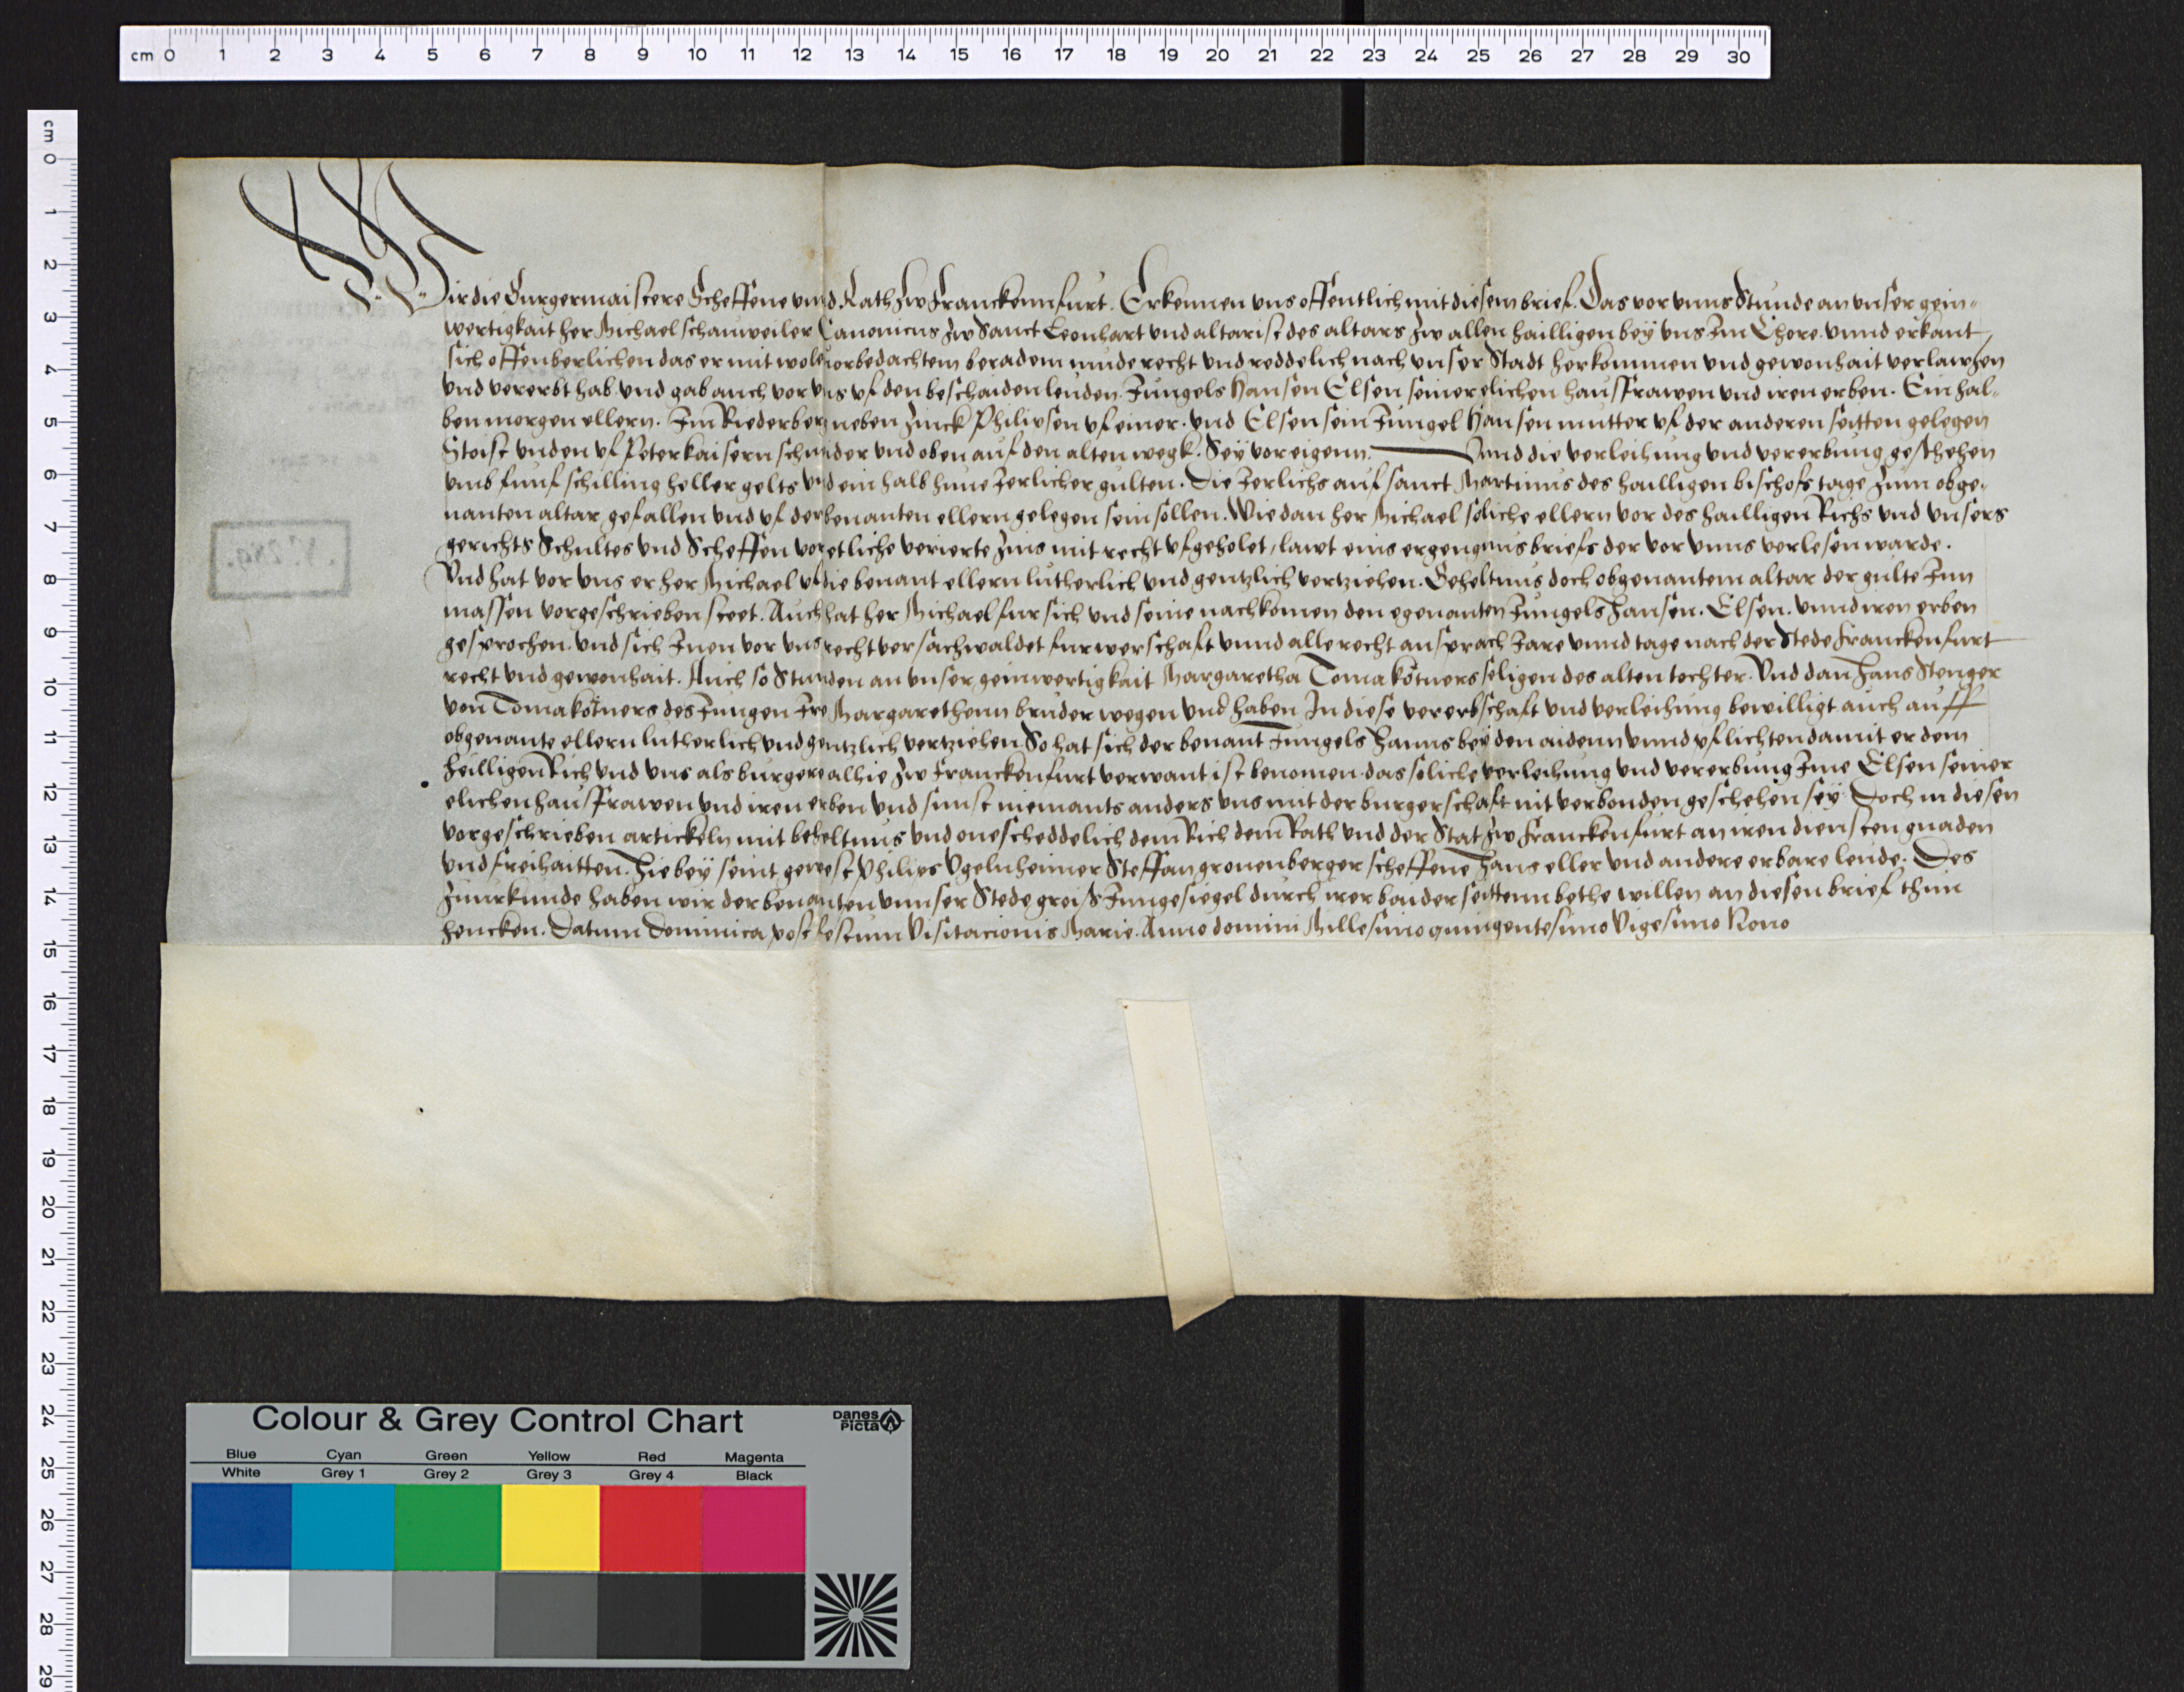 cm 0 1 2 3 4 5 6 7 8 9 10 11 12 13 14 15 16 17 18 19 20 21 22 23 24 25 26 27 28 29 30
cm 0 1 2 3 4 5 6 7 8 9 10 11 12 13 14 15 16 17 18 19 20 21 22 23 24 25 26 27 28 29
Wir die Burgermaistere Scheffene vnnd Rath zw Franckennfurt. Erkennen vns offentlich mit diesem brief. Das vor vnns Stunde an vnser gein-
wertigkait her Michael schauweiler Canonicus zw Sanct Leonhart vnd altarist des altars zw allen hailligen bey vns Im Chore. vnnd erkant,
sich offenberlichen das er mit wole vorbedachtem beradem mude recht vnd reddelich nach vnser Stadt herkommen vnd gewonhait verlawhen
vnd vererbt hab. vnd gab auch vor vns vf den beschaiden leuden. Jungels Hansen Elsen seiner elichen hausfrawen vnd iren erben. Ein hal-
ben morgen ellern. Im Riederberg neben Zinck Philipsen vf einer. vnd Elsen sein Jungel Hansen mutter vf der anderen seitten gelegen
Stoist vnden vf Peter kaisern schnider vnd oben auf den alten wegk. Sey vor eigenn. Vnnd die verleihung vnd vererbung geschehen
vmb funf schilling heller gelts vnd ein halb hune Jerlicher gulten. Die Jerlichs auf sanct Martinus des hailligen bischofs tage zum obge-
nanten altar gefallen vnd vf der benanten ellern gelegen sein sollen. Wie dan her Michael soliche ellern vor des hailligen Richs vnd vnsers
gerichts Schultes vnd Scheffen vor etliche verierte zins mit recht vfgeholet, lawt eins ergengnus briefs der vor vnns verlesen warde.
Vnd hat vor vns er her Michael vf die benant ellern lutherlich vnd gentzlich vertziehen. Beheltnus doch obgenantem altar der gulte Inn
massen vorgeschrieben steet. Auch hat her Michael fur sich vnd seine nachkomen den egenanten Jungels hansen. Elsen. vnnd iren erben
gesprochen. vnd sich Inen vor vns recht versachwaldet fur werschaft vnnd alle recht ansprach Jare vnnd tage nach der Stede Franckenfurt
recht vnd gewonhait. Auch so Stunden an vnser geinwertigkait Margaretha Toma kotners seligen des alten tochter. Vnd dan hans Stenger
von Toma kotners des Jungen Ire Margarethenn bruder wegen vnd haben In diese vererbschaft vnd verleihung bewilligt auch auff
obgenante ellern lutherlich vnd gentzlich vertziehen So hat sich der benant Jungels hanns bey den aidenn vnnd pflichten damit er dem
heilligen Rich vnd vns als burgere alhie zw Franckenfurt verwant ist benomen. das soliche verleihung vnd vererbung Ime Elsen seiner
elichen hausfrawen vnd iren erben vnd sunst niemants anders vns mit der burgerschaft nit verbonden geschehen sey. Doch in diesen
vorgeschrieben artickeln mit beheltnus vnd onescheddelich dem Rich dem Rath vnd der Stat zw Franckenfurt an iren diensten gnaden
vnd freihaitten. hie bey seint gewest Philips Vgelnheimer Steffan gronenberger scheffene hans eller vnd andere erbare leude. Des
zu urkunde haben wir der benanten vnnser Stede groiß Jungesiegel durch irer baider seittenn bethe willen an diesen brief thun
hencken. Datum Dominica post festum Visitacionis Marie. Anno domini Millesimo quingentesimo Vigesimo Nono
Colour & Grey Control Chart
Danes Picta
Blue Cyan Green Yellow Red Magenta
White Grey 1 Grey 2 Grey 3 Grey 4 Black